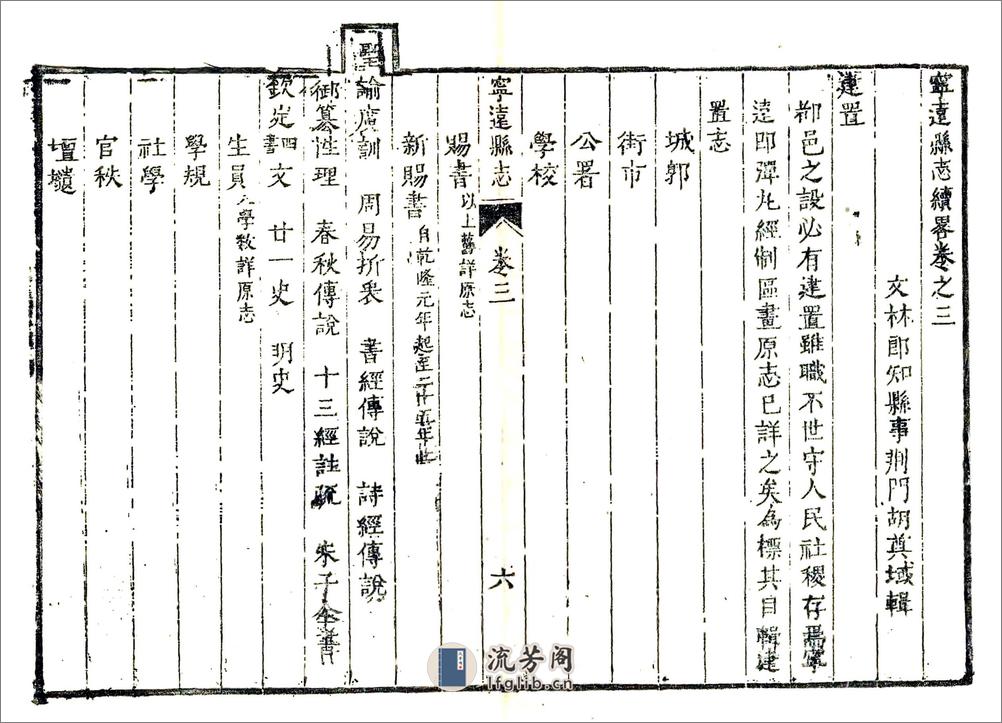 寧遠縣志續畧卷之三
文林郎知縣事荆門胡奠域輯
建置
郡邑之設必有建置雖職不世守人民社稷存焉寧
遠即彈丸經制區畫原志已詳之矣為標其目輯建
置志
城郭
街市
公署
學校
寧遠縣志 卷三 六
賜書以上舊詳原志
新賜書自乾隆元年起至二十五年止
聖諭廣訓 周易折衷 書經傳說 詩經傳說
御纂性理 春秋傳說 十三經註疏 朱子全書
欽定四書文 廿一史 明史
生員入學數詳原志
學規
社學
官秩
壇壝
流芳阁
lfglib.cn